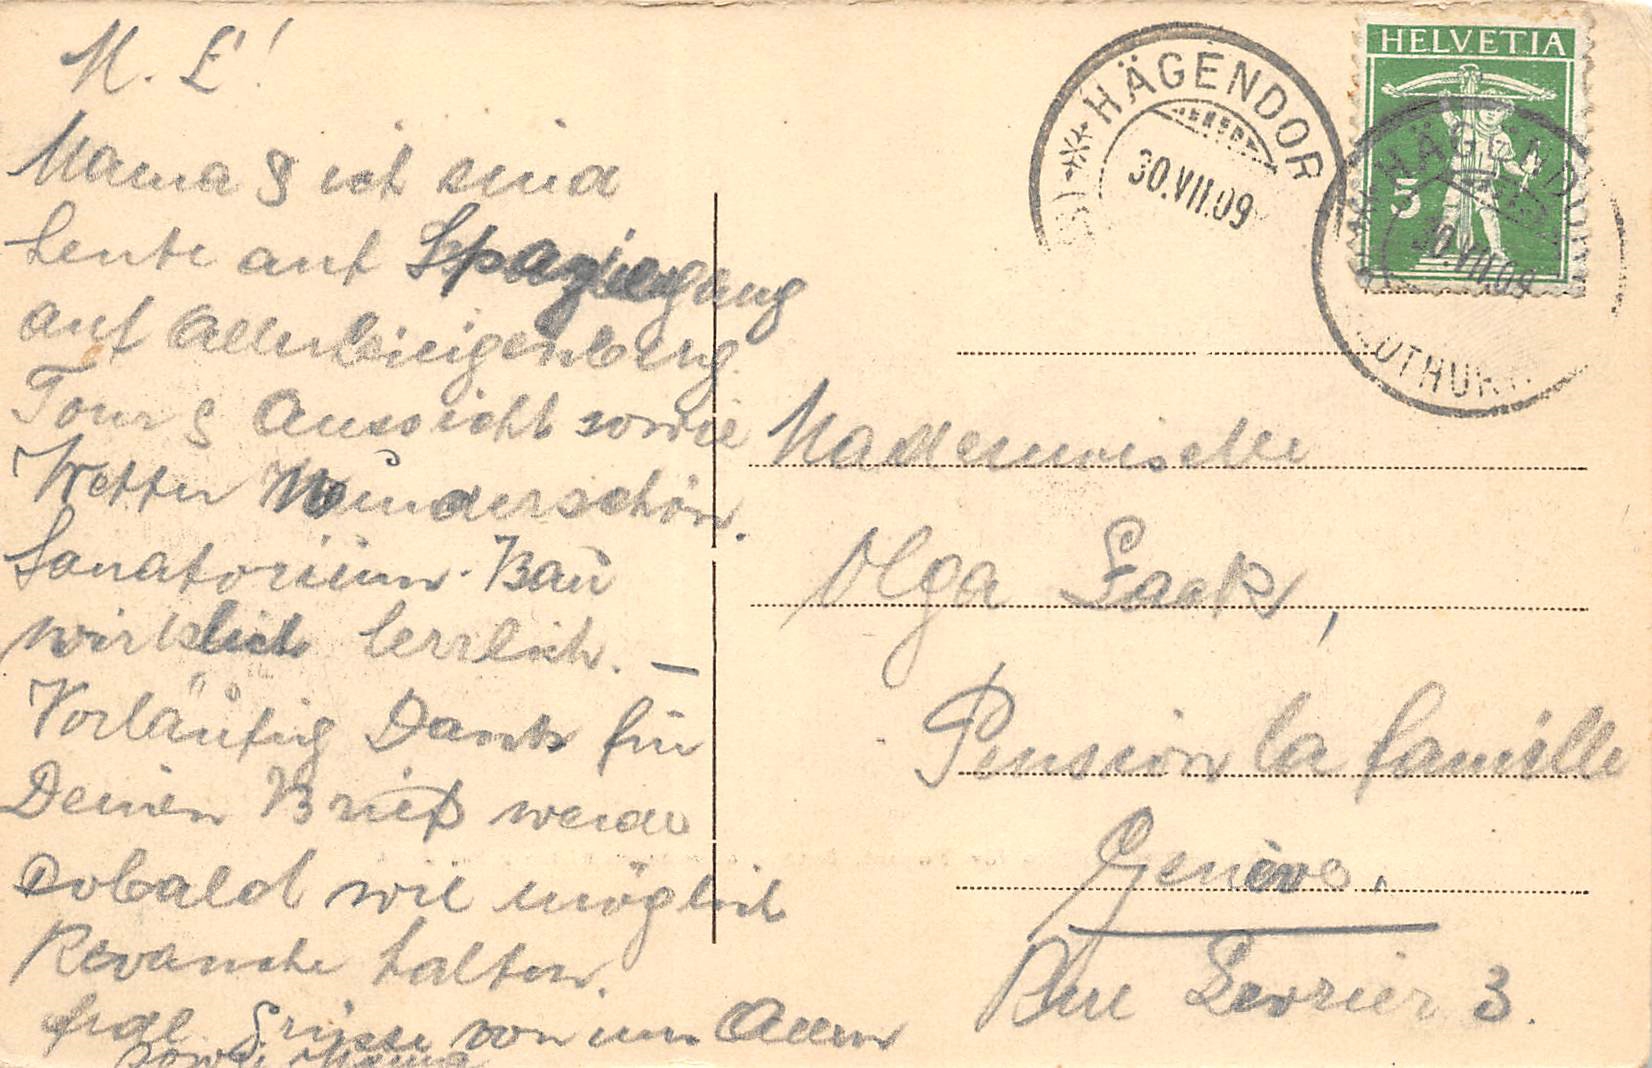 M. L!
Mama & ich sind
heute auf Spaziegang
auf Allerheiligenberg.
Tour & Aussicht sowie
Wetter Wunderschön.
Sanatorium-Bau
wirklich herrlich. —
Vorläufig Dank für
Deinen Brief werde
sobald wie möglich
Revanche halten.
Grüsse von uns Allen
Mama
HÄGENDORF
30.VII.09
HELVETIA
5
HÄGENDORF
30.VII.09
SOLOTHURN
Mademoiselle
Olga
Pension la famille
Genève.
Rue Levrier 3.